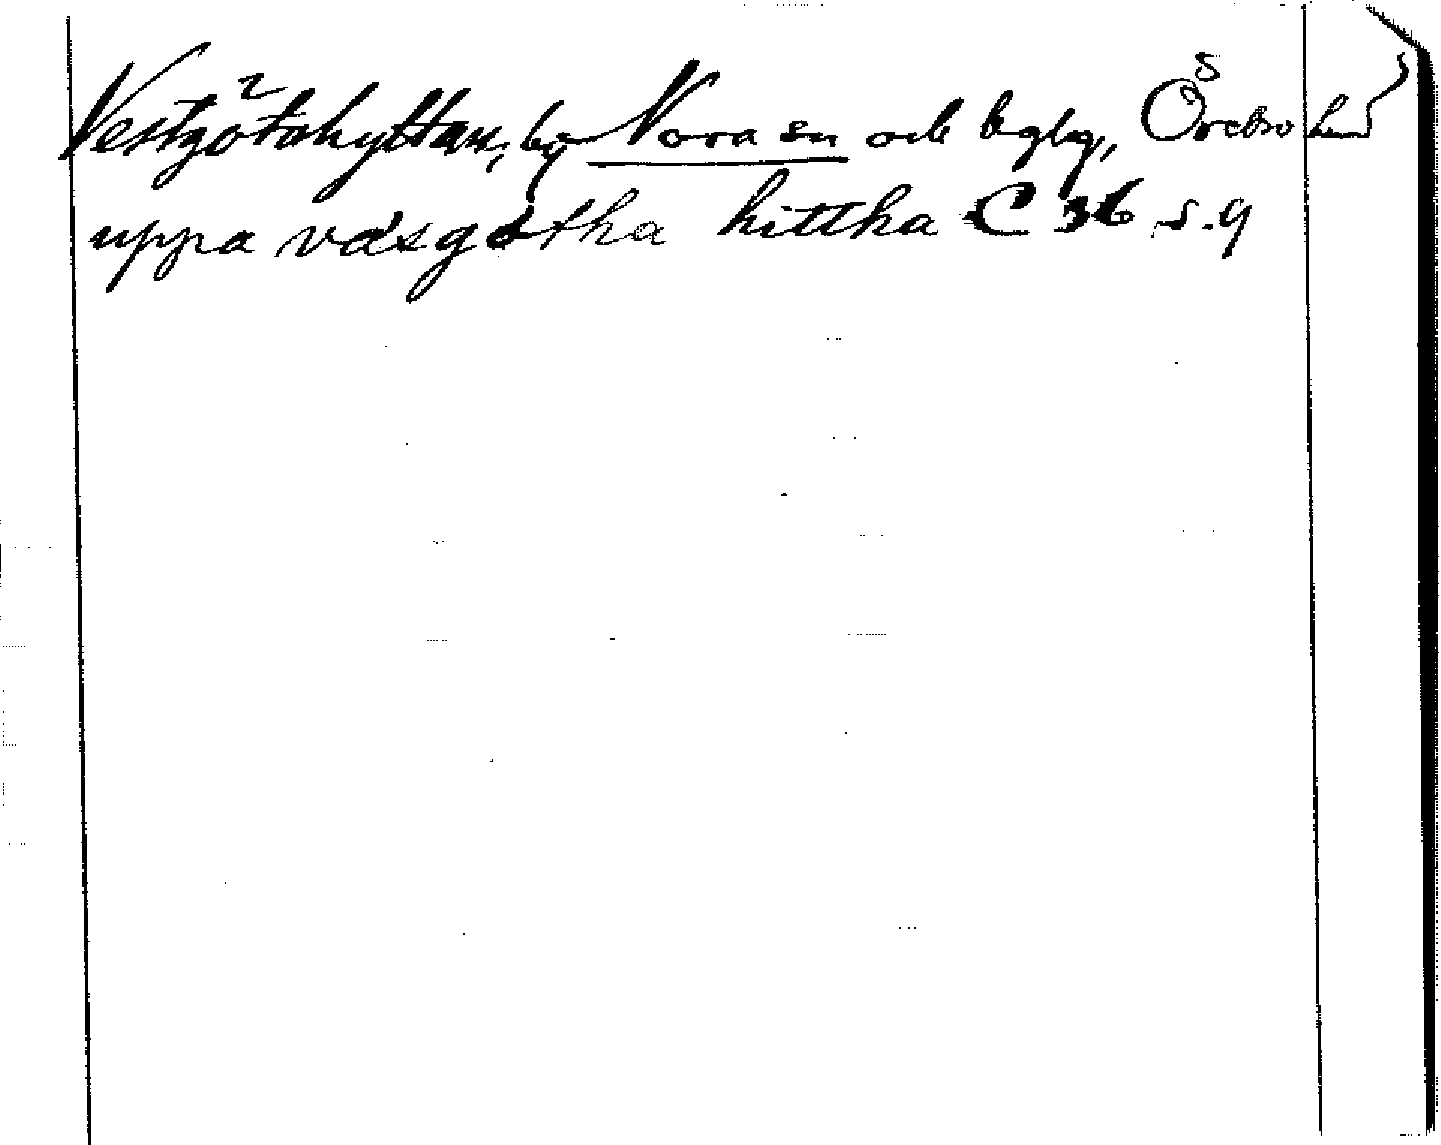 Vestgötahyttan, by Nora sn och bglg, Örebro län
uppa väsgøtha hittha C 36 s. 9